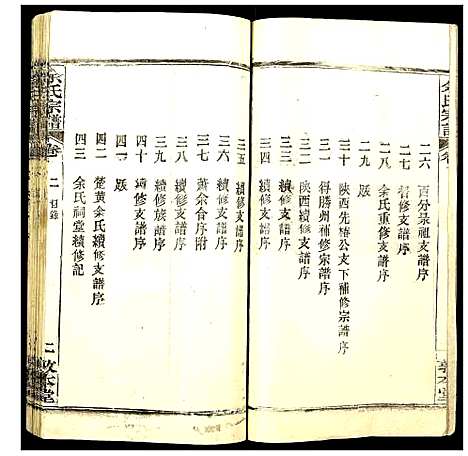 二六 百分杲祖支譜序
二七 耆修支譜序
二八 余氏重修支譜序
二九 跋
三十 陝西先椿公支下補修宗譜序
三一 得勝州補修宗譜序
三二 陝西續修支譜序
三三 續修支譜序
三四 續修支譜序
三五 續修支譜序
三六 續修支譜序
三七 蕭余合序附
三八 續修支譜序
三九 續修族譜序
四十 續修支譜序
四一 跋
四二 楚黄余氏續修支譜序
四三 余氏祠堂續修記
余氏宗譜
卷二 目錄
二 敦本堂